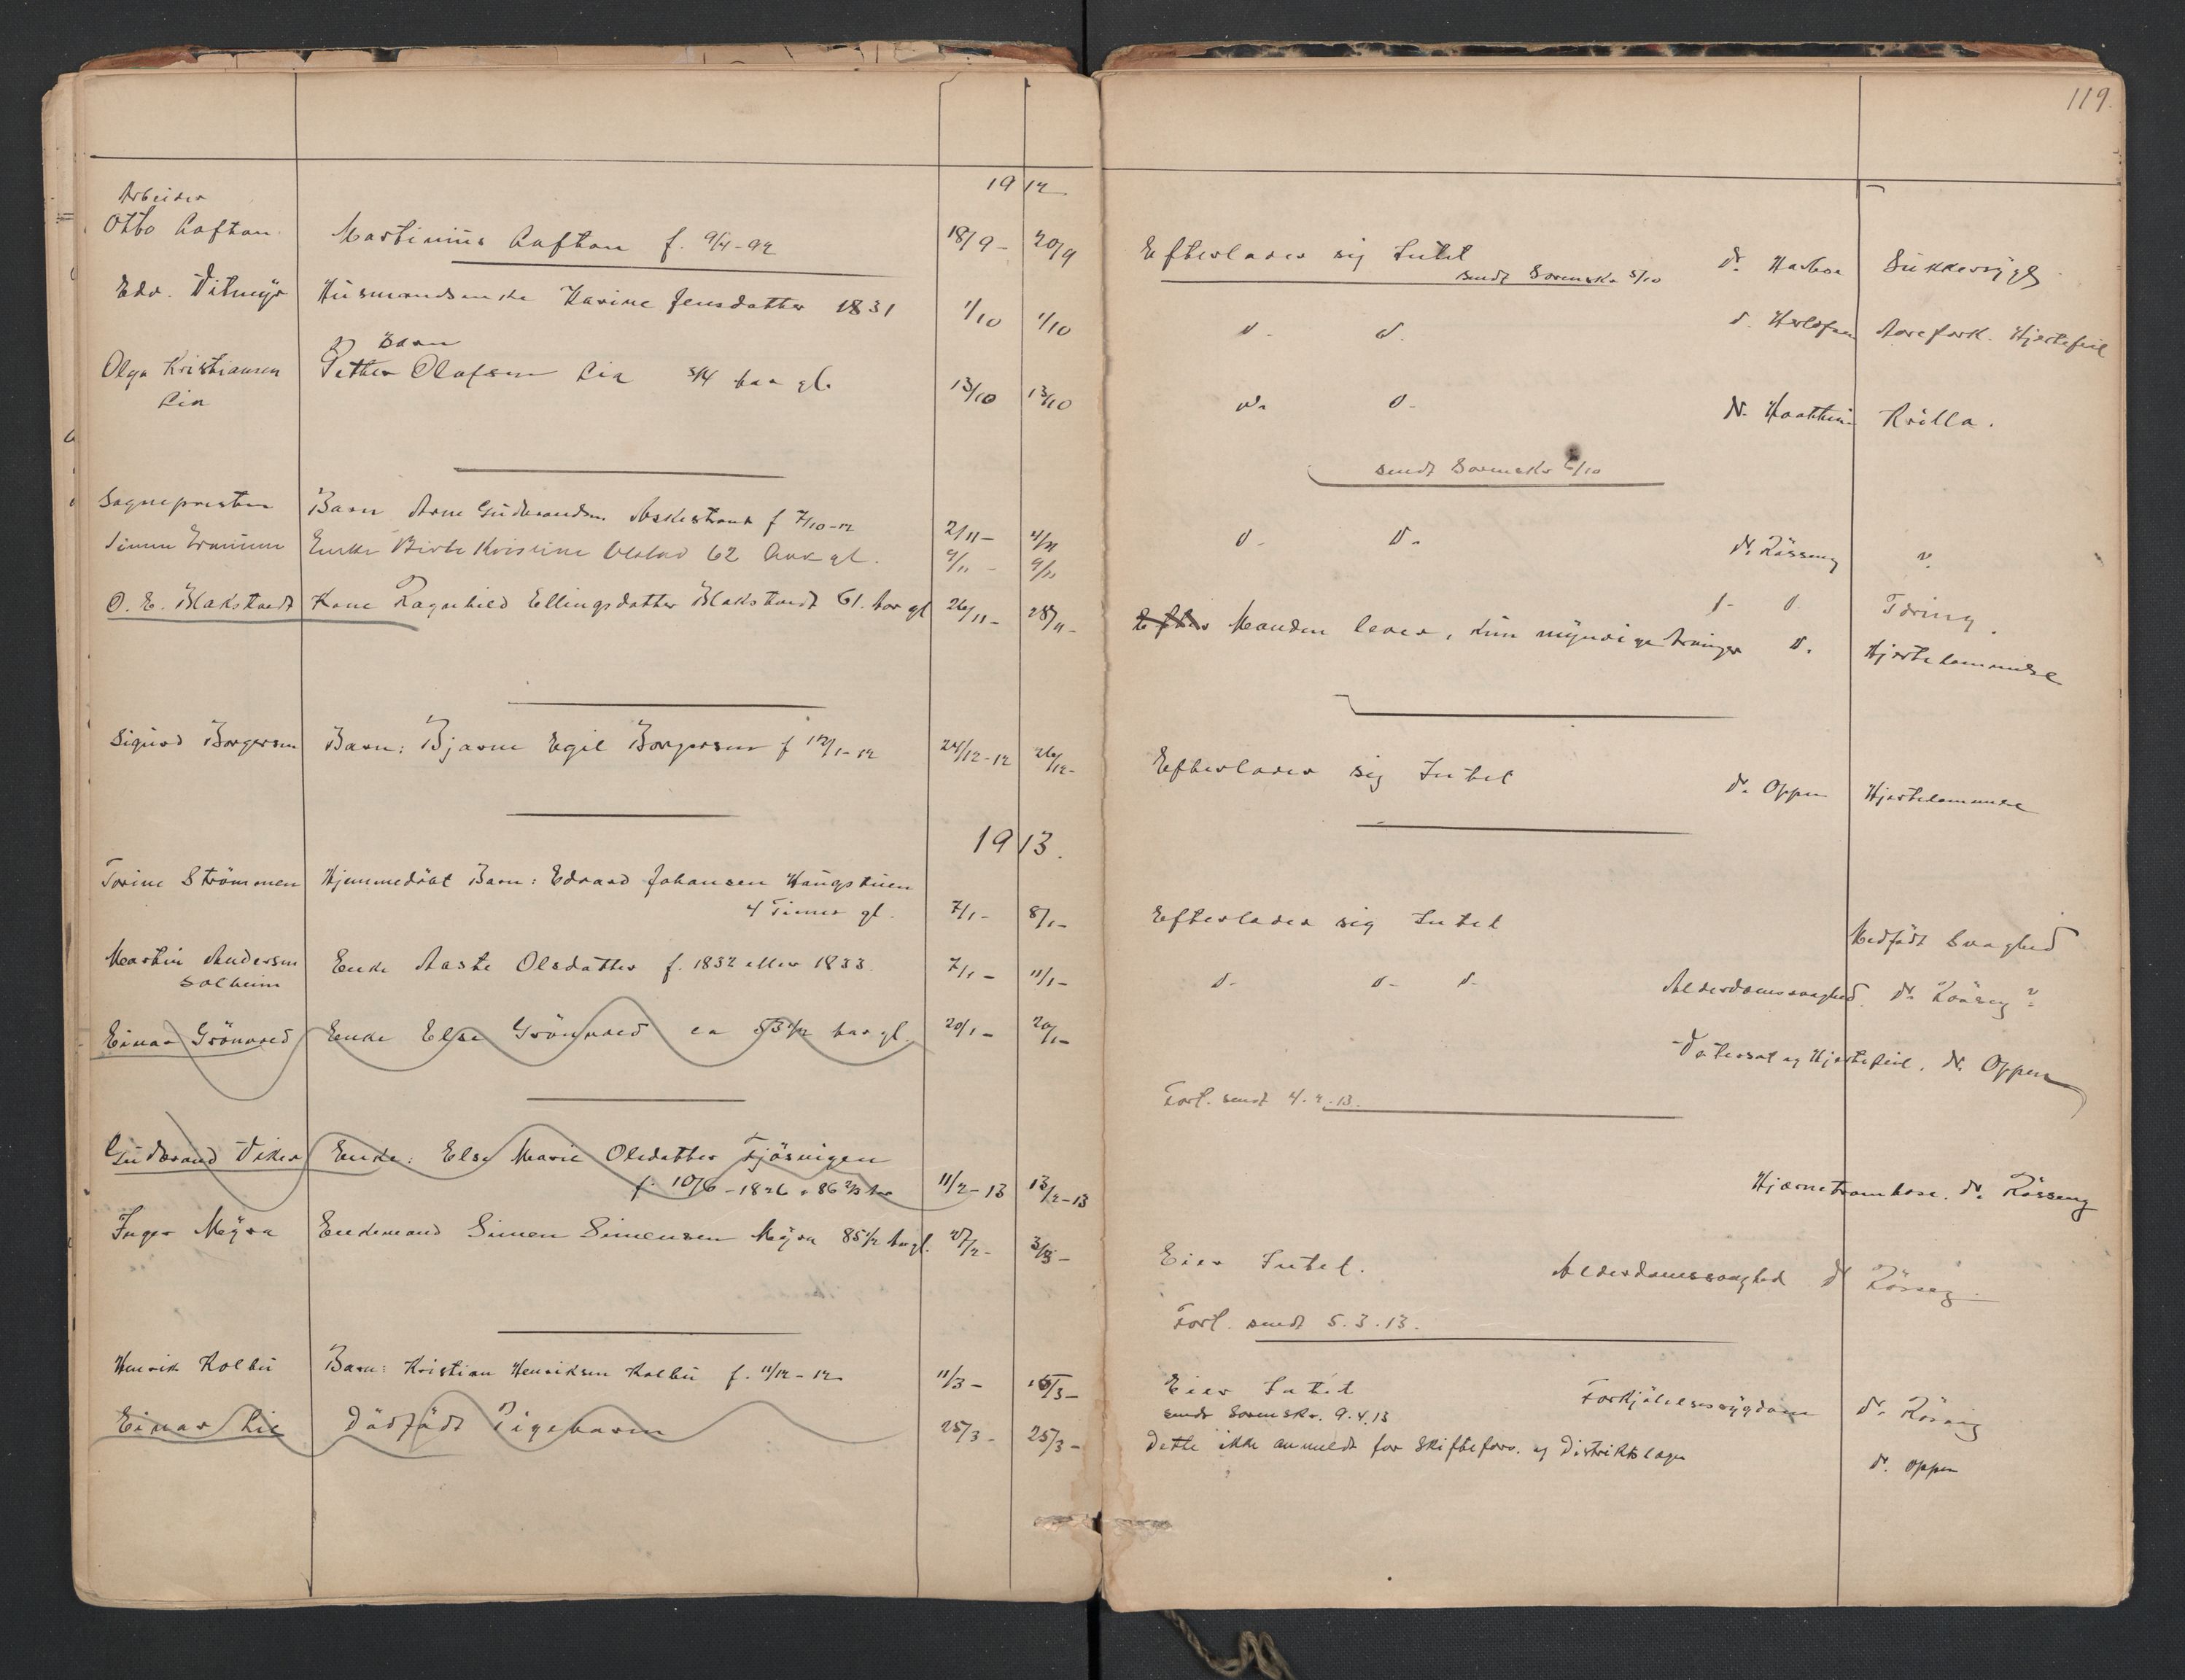 119.
1912
Arbeider
Otto Aafton Martinius Aafton f. 9/4-92 18/9- 20/9 Efterlader sig Intet dr. Harboe Sukkersyge
sendt Sorenskr 5/10
Edv. Vitmyr Husmandsenke Karine Jensdatter 1831 1/10 1/10 d. d. d. Herlofsen Aarefork. Hjertefeil
Barn
Olga Kristiansen Petter Olafsen Lia 3/4 Aar gl. 13/10 13/10 d. d. dr. Haathi Krilla.
Lia
sendt Sorenskr 6/10
Sognepresten Barn Arne Gudbrandsen Askestrand f 7/10-12 2/11- 4/11 d. d. dr. Rösseng ?
Simen Enke Birte Kristine 62 Aar gl. 9/11- 9/11 d. d. Tæring.
O. E. Blakstvedt Kone Ragnhild Ellingsdatter Blakstvedt 61. Aar gl 26/11- 28/11- Efter Manden lever, kun myndige Arvinger d. Hjertelammelse
Sigurd Borgersen Barn: Bjarne Egil Borgersen f 12/1-12 24/12-12 26/12- Efterlader sig Intet dr. Oppen Hjertelammelse
1913.
Torine Strömmen Hjemmedöbt Barn: Edvard Johansen Haugstuen
4 Timer gl. 7/1- 8/1- Efterlader sig Intet Medfödt Svaghed
Martin Andersen Enke Aaste Olsdatter f. 1832 eller 1833. 7/1- 11/1- d. d. d. Alderdomssvaghed. dr. Rösseng ?
Solheim
Einar Grönvold Enke Else Grönvold ca 53 1/2 Aar gl. 20/1- 20/1- Vatersot og Hjertefeil. dr. Oppen
Fort. sendt 4.2.13.
Gudbrand Viker Enke: Else Marie Olsdatter Tjösvigen
f. 10/6-1826 = 86 2/3 Aar 11/2-13 13/2-13 Hjernetrombose. dr. Rösseng
Inger Myra Enkemand Simen Simensen Myra 85 1/2 Aar gl. 27/2- 3/3- Eier Intet. Alderdomssvaghed dr Rösseng
Fort. sendt 5.3.13.
Henrik Kolbu Barn: Kristian Henriksen Kolbu f. 11/12-12 11/3- 15/3- Eier Intet Forkjölelsessygdom dr. Rösseng
sendt Sorenskr. 9.4.13
Einar Lie Dödfödt Pigebarn 25/3- 25/3- Dette ikke anmeldt for Skifteforv. og Distriktslæge dr. Oppen